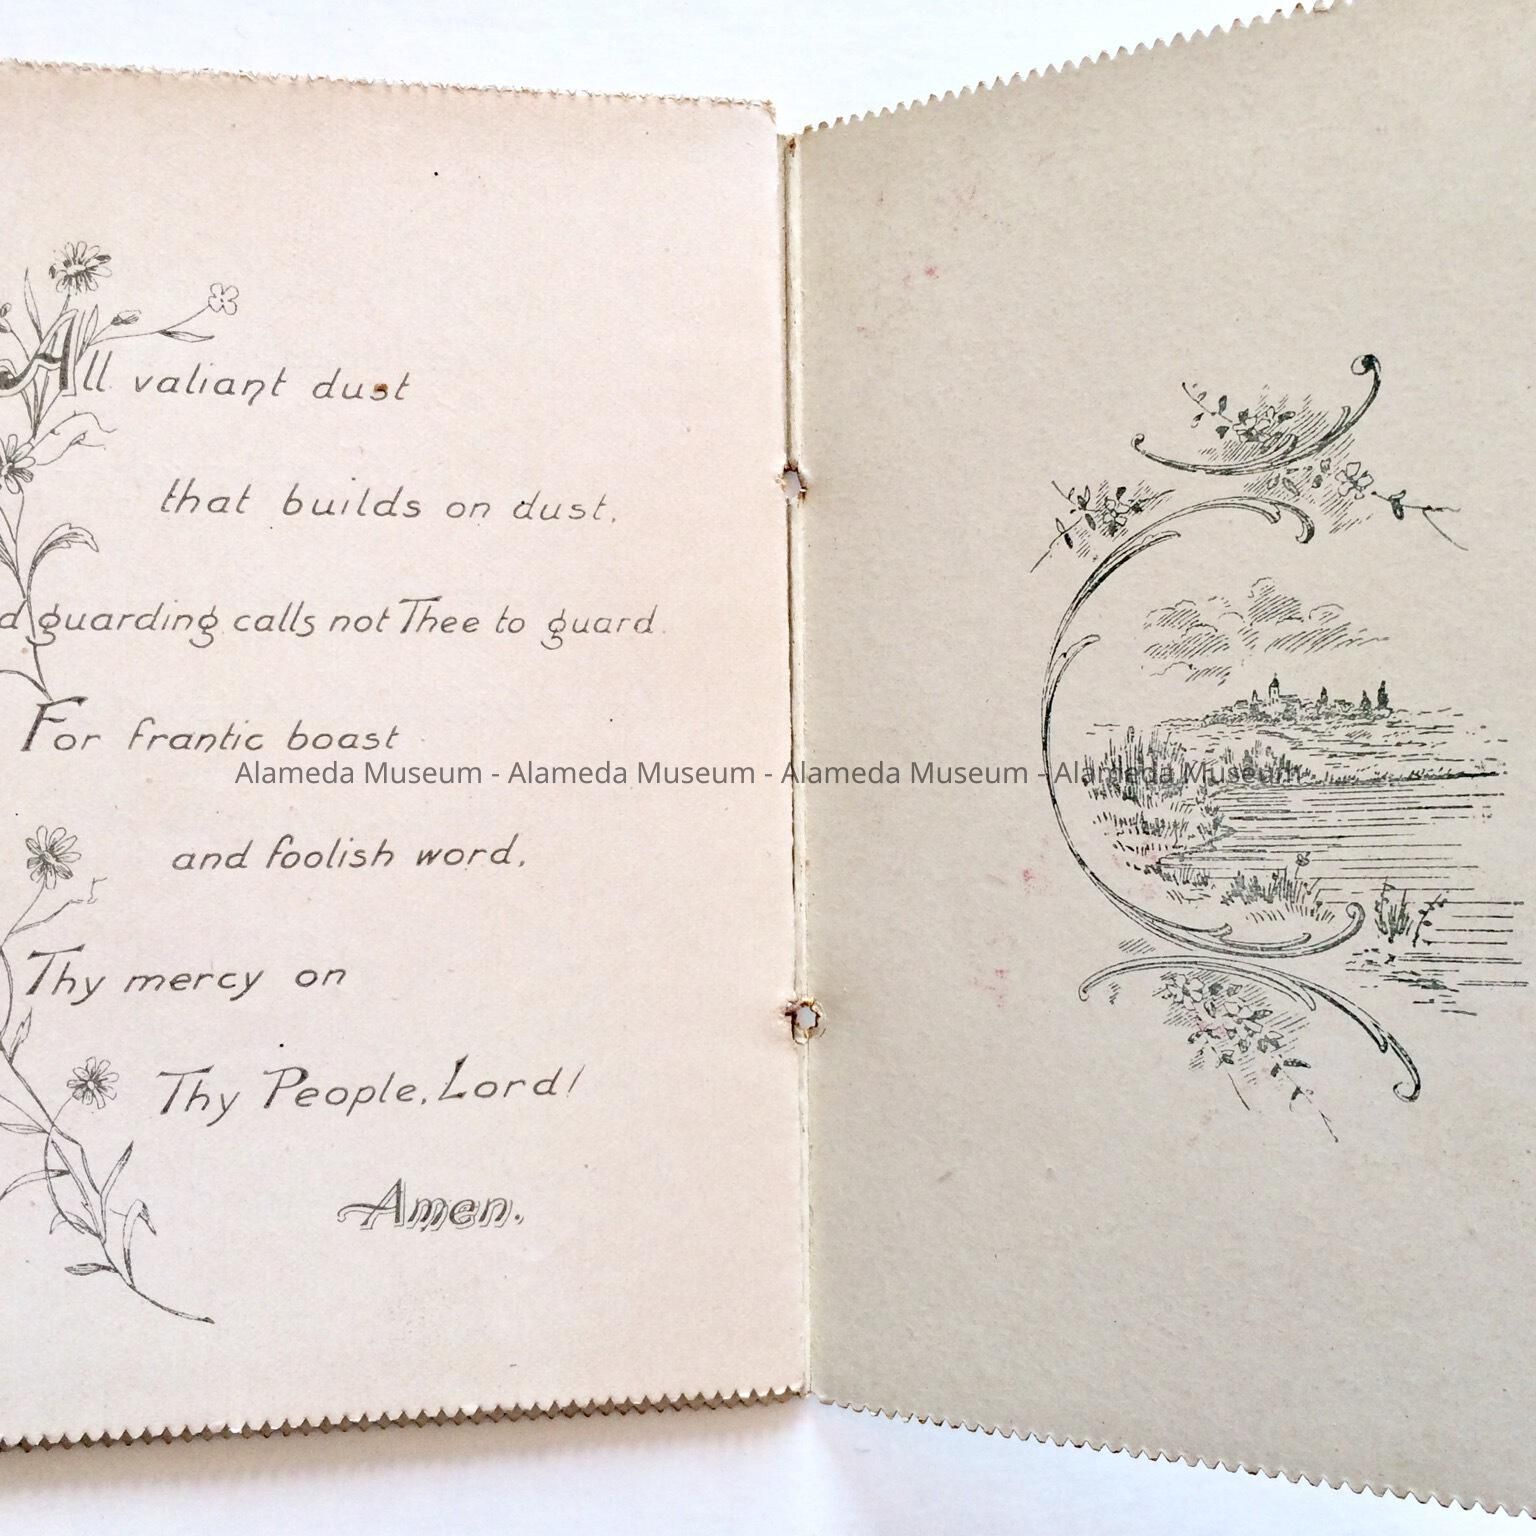 All valiant dust
that builds on dust,
d guarding calls not Thee to guard.
For frantic boast
and foolish word,
Thy mercy on
Thy People, Lord!
Amen.
Alameda Museum - Alameda Museum - Alameda Museum - Alameda Museum